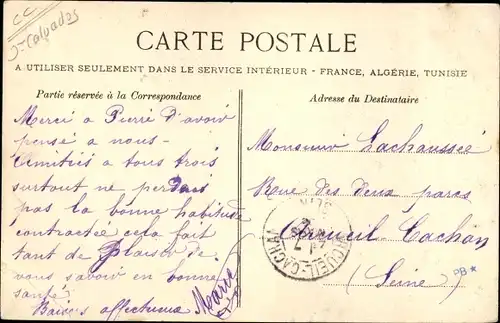 CC
Jn Calvados
CARTE POSTALE
A UTILISER SEULEMENT DANS LE SERVICE INTÉRIEUR - FRANCE, ALGÉRIE, TUNISIE
Partie réservée à la Correspondance
Adresse du Destinataire
Merci a Pierre d'avoir
pensé a nous -
Amitiés a tous trois
surtout ne perdais
pas la bonne habitude
contractée cela fait
tant de plaisir de
vous savoir en bonne
santé
Baisers affectueux
Marie
Monsieur Lachaussée
Rue des deux parcs
Arcueil Cachan
(Seine)
ARCUEIL-CACHAN
PB*